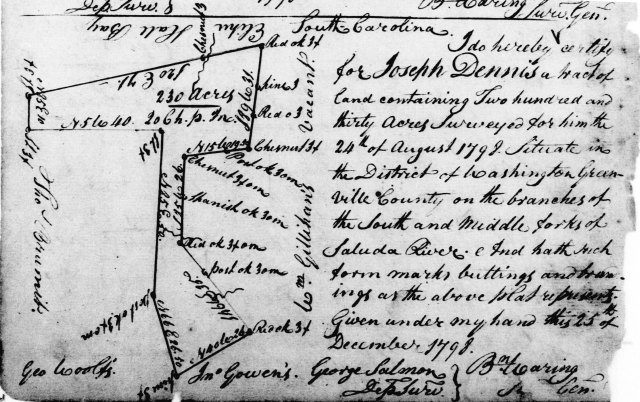 Dep Surv. B
Bn. Waring
Surv. Genl.
South Carolina
I do hereby Certify
for Joseph Dennis a tract of
land containing Two hundred and
thirty Acres Surveyed for him the
24th of August 1798. Situate in
the District of Washington Gran-
ville County on the branches of
the South and Middle forks of
Saluda River. & And hath such
form marks buttings and boun-
ings as the above plat represents
Given under my hand this 25th of
December 1798.
George Salmon
Dep Surv.
Bn. Waring
Sr Genl.
Elisha Hall Bay
Red ok 3x
Chesnut 3
Pine 3
Red o 3
Vacant
230 Acres
20 Ch. p. In.
N 56 W 40
Chesnut 3x
Post ok 3om
Chesnut 3x om
Spanish ok 3om
Red ok 3x om
Post ok 3om
Red ok 3x
Wm Gillihans
Post ok 3x om
Geo Woolf's
Jno Gowen's